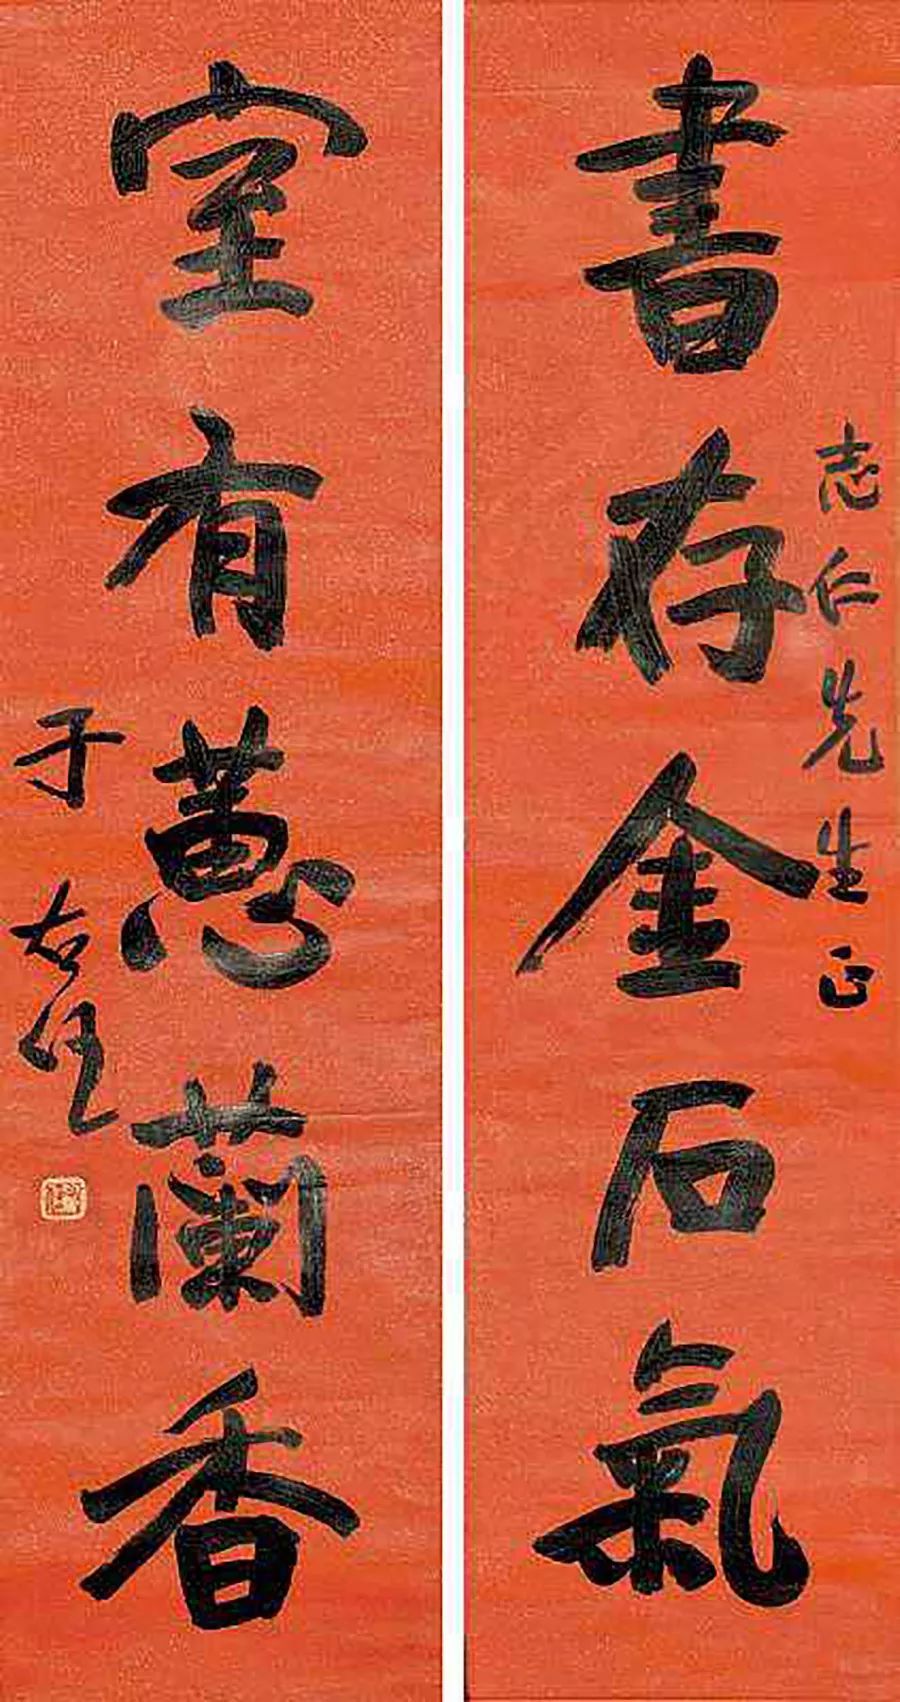 書存金石氣
志仁先生正
室有蕙蘭香
于右任